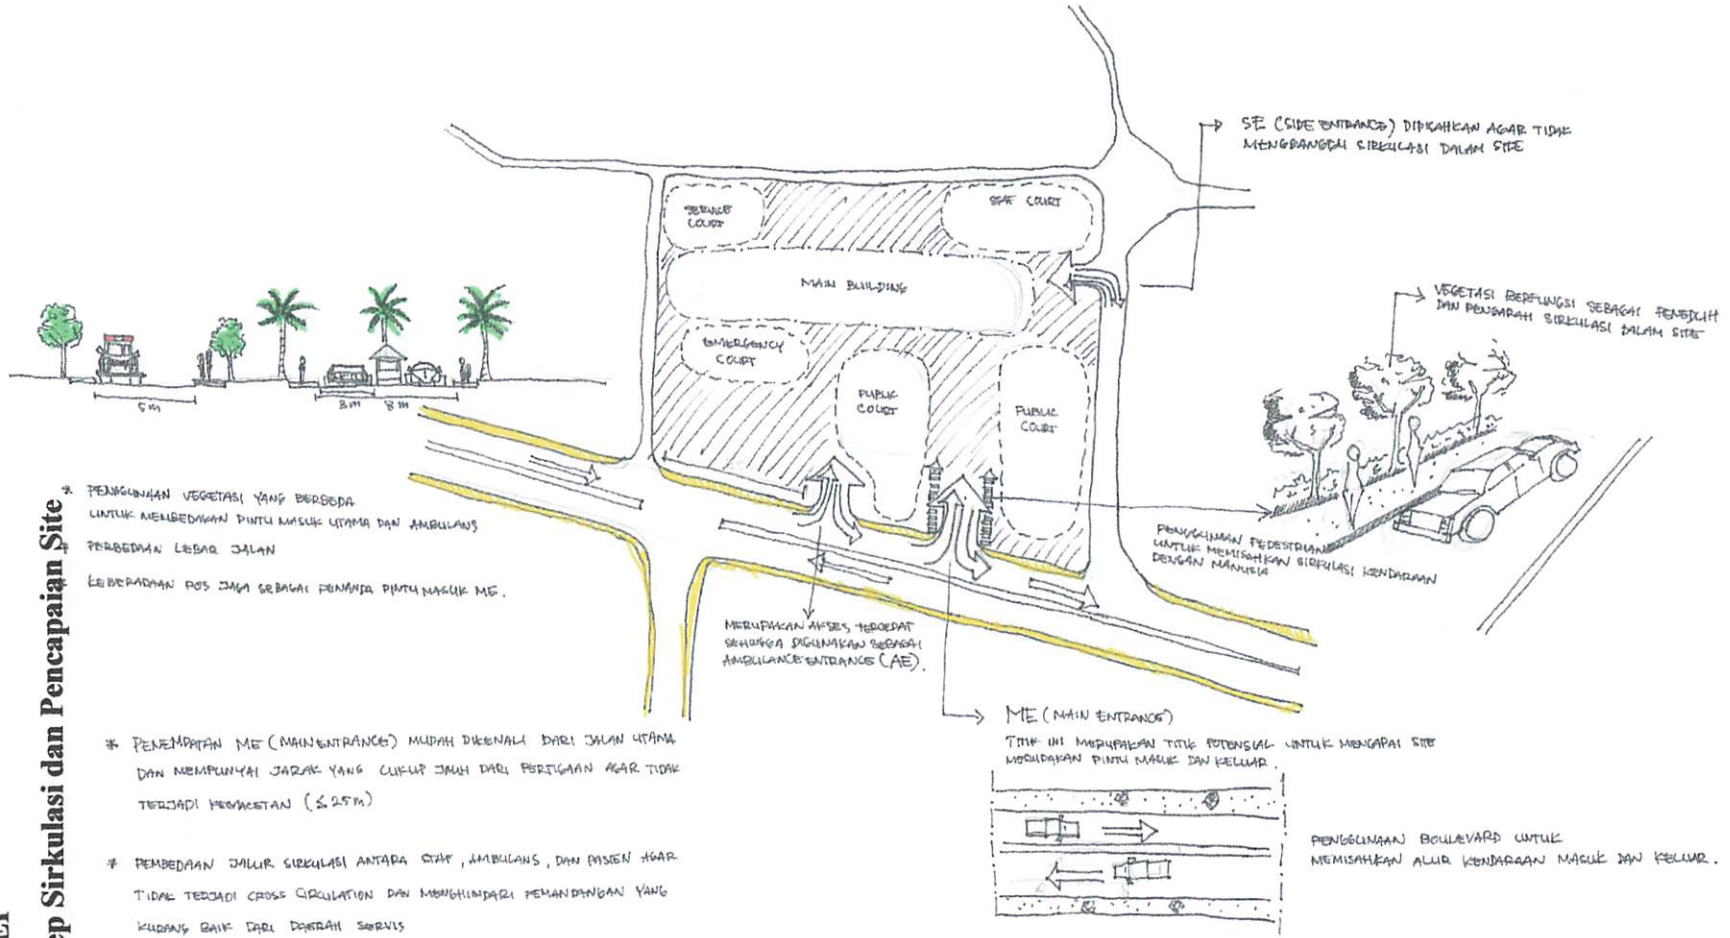 ep Sirkulasi dan Pencapaian Site
SE (SIDE ENTRANCE) DIPISAHKAN AGAR TIDAK
MENGGANGGU SIRKULASI DALAM SITE
SERVICE
COURT
STAF COURT
MAIN BUILDING
EMERGENCY
COURT
PUBLIC
COURT
PUBLIC
COURT
VEGETASI BERFUNGSI SEBAGAI PENEDUH
DAN PENGARAH SIRKULASI DALAM SITE
5m
3m 8m
* PENGGUNAAN VEGETASI YANG BERBEDA
UNTUK MEMBEDAKAN PINTU MASUK UTAMA DAN AMBULANS
* PERBEDAAN LEBAR JALAN
* KEBERADAAN POS JAGA SEBAGAI PENANDA PINTU MASUK ME.
PENGGUNAAN PEDESTRIAN
UNTUK MEMISAHKAN SIRKULASI KENDARAAN
DENGAN MANUSIA
MERUPAKAN AKSES TERCEPAT
SEHINGGA DIGUNAKAN SEBAGAI
AMBULANCE ENTRANCE (AE).
ME (MAIN ENTRANCE)
TITIK INI MERUPAKAN TITIK POTENSIAL UNTUK MENCAPAI SITE
MERUPAKAN PINTU MASUK DAN KELUAR.
* PENEMPATAN ME (MAIN ENTRANCE) MUDAH DIKENALI DARI JALAN UTAMA
DAN MEMPUNYAI JARAK YANG CUKUP JAUH DARI PERTIGAAN AGAR TIDAK
TERJADI KEMACETAN (≤ 25m)
* PEMBEDAAN JALUR SIRKULASI ANTARA STAF, AMBULANS, DAN PASIEN AGAR
TIDAK TERJADI CROSS CIRCULATION DAN MENGHINDARI PEMANDANGAN YANG
KURANG BAIK DARI DAERAH SERVIS
PENGGUNAAN BOULEVARD UNTUK
MEMISAHKAN ALUR KENDARAAN MASUK DAN KELUAR.